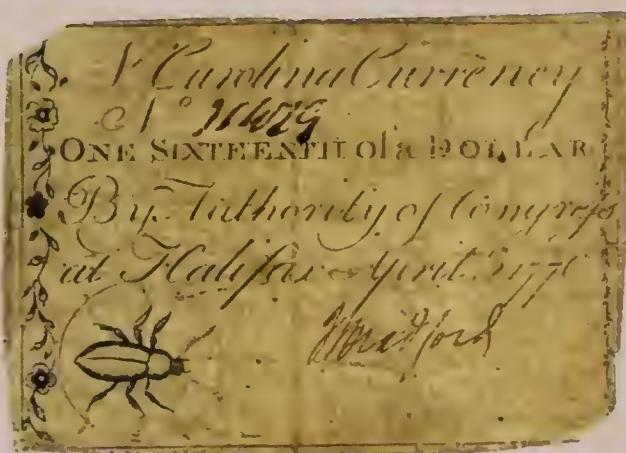 N Carolina Currency
No
ONE SIXTEENTH of a DOLLAR
By Authority of Congress
at Halifax April 2 1776